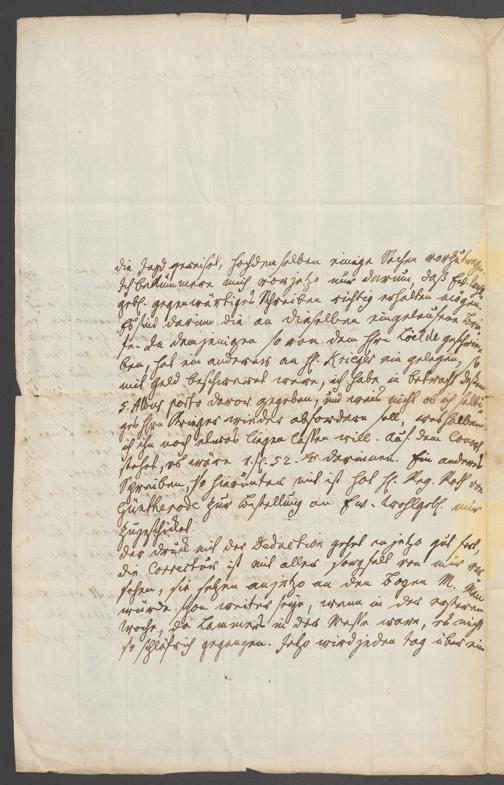 die Jagd gereiset, hochdemselben einige Sachen vorzutragen.
Ich bekümmere mich vorjetzo nur darum, daß Ew. Wohl-
gebl. gegenwärtiges Schreiben richtig erhalten mögen.
Es sind darinn die an dieselben eingelauffene Brie-
fe. In demjenigen so von dem Hrn Loelde geschrie-
ben, hat ein anderes an H. Krieger ein gelegen, so
mit Geld beschweret ware, ich habe in betracht dessen
5. Albus porto davor gegeben, und weiß nicht ob ich solches
Hrn Krieger wieder abfordern soll, weshalben
ich ihn noch etwas liegen lassen will. Auf dem Couvert
stehet, es wäre 1. fl. 52. darinnen. Ein anderes
Schreiben, so hierunter mit ist hat H. Reg. Rath von
Günterode zur bestellung an Ew. Wohlgebl. mir
zugeschicket.
Der Druck mit der Deduction gehet anjetzo gut fort,
die Correctur ist mit aller sorgfalt von mir ver-
sehen, sie setzen anjetzo an dem bogen M. Man
würde schon weiter seyn, wann in der ersteren
woche, da Lammers in der Messe ware, es nicht
so schläfrich gegangen. Jetzo wird jeden tag über ein